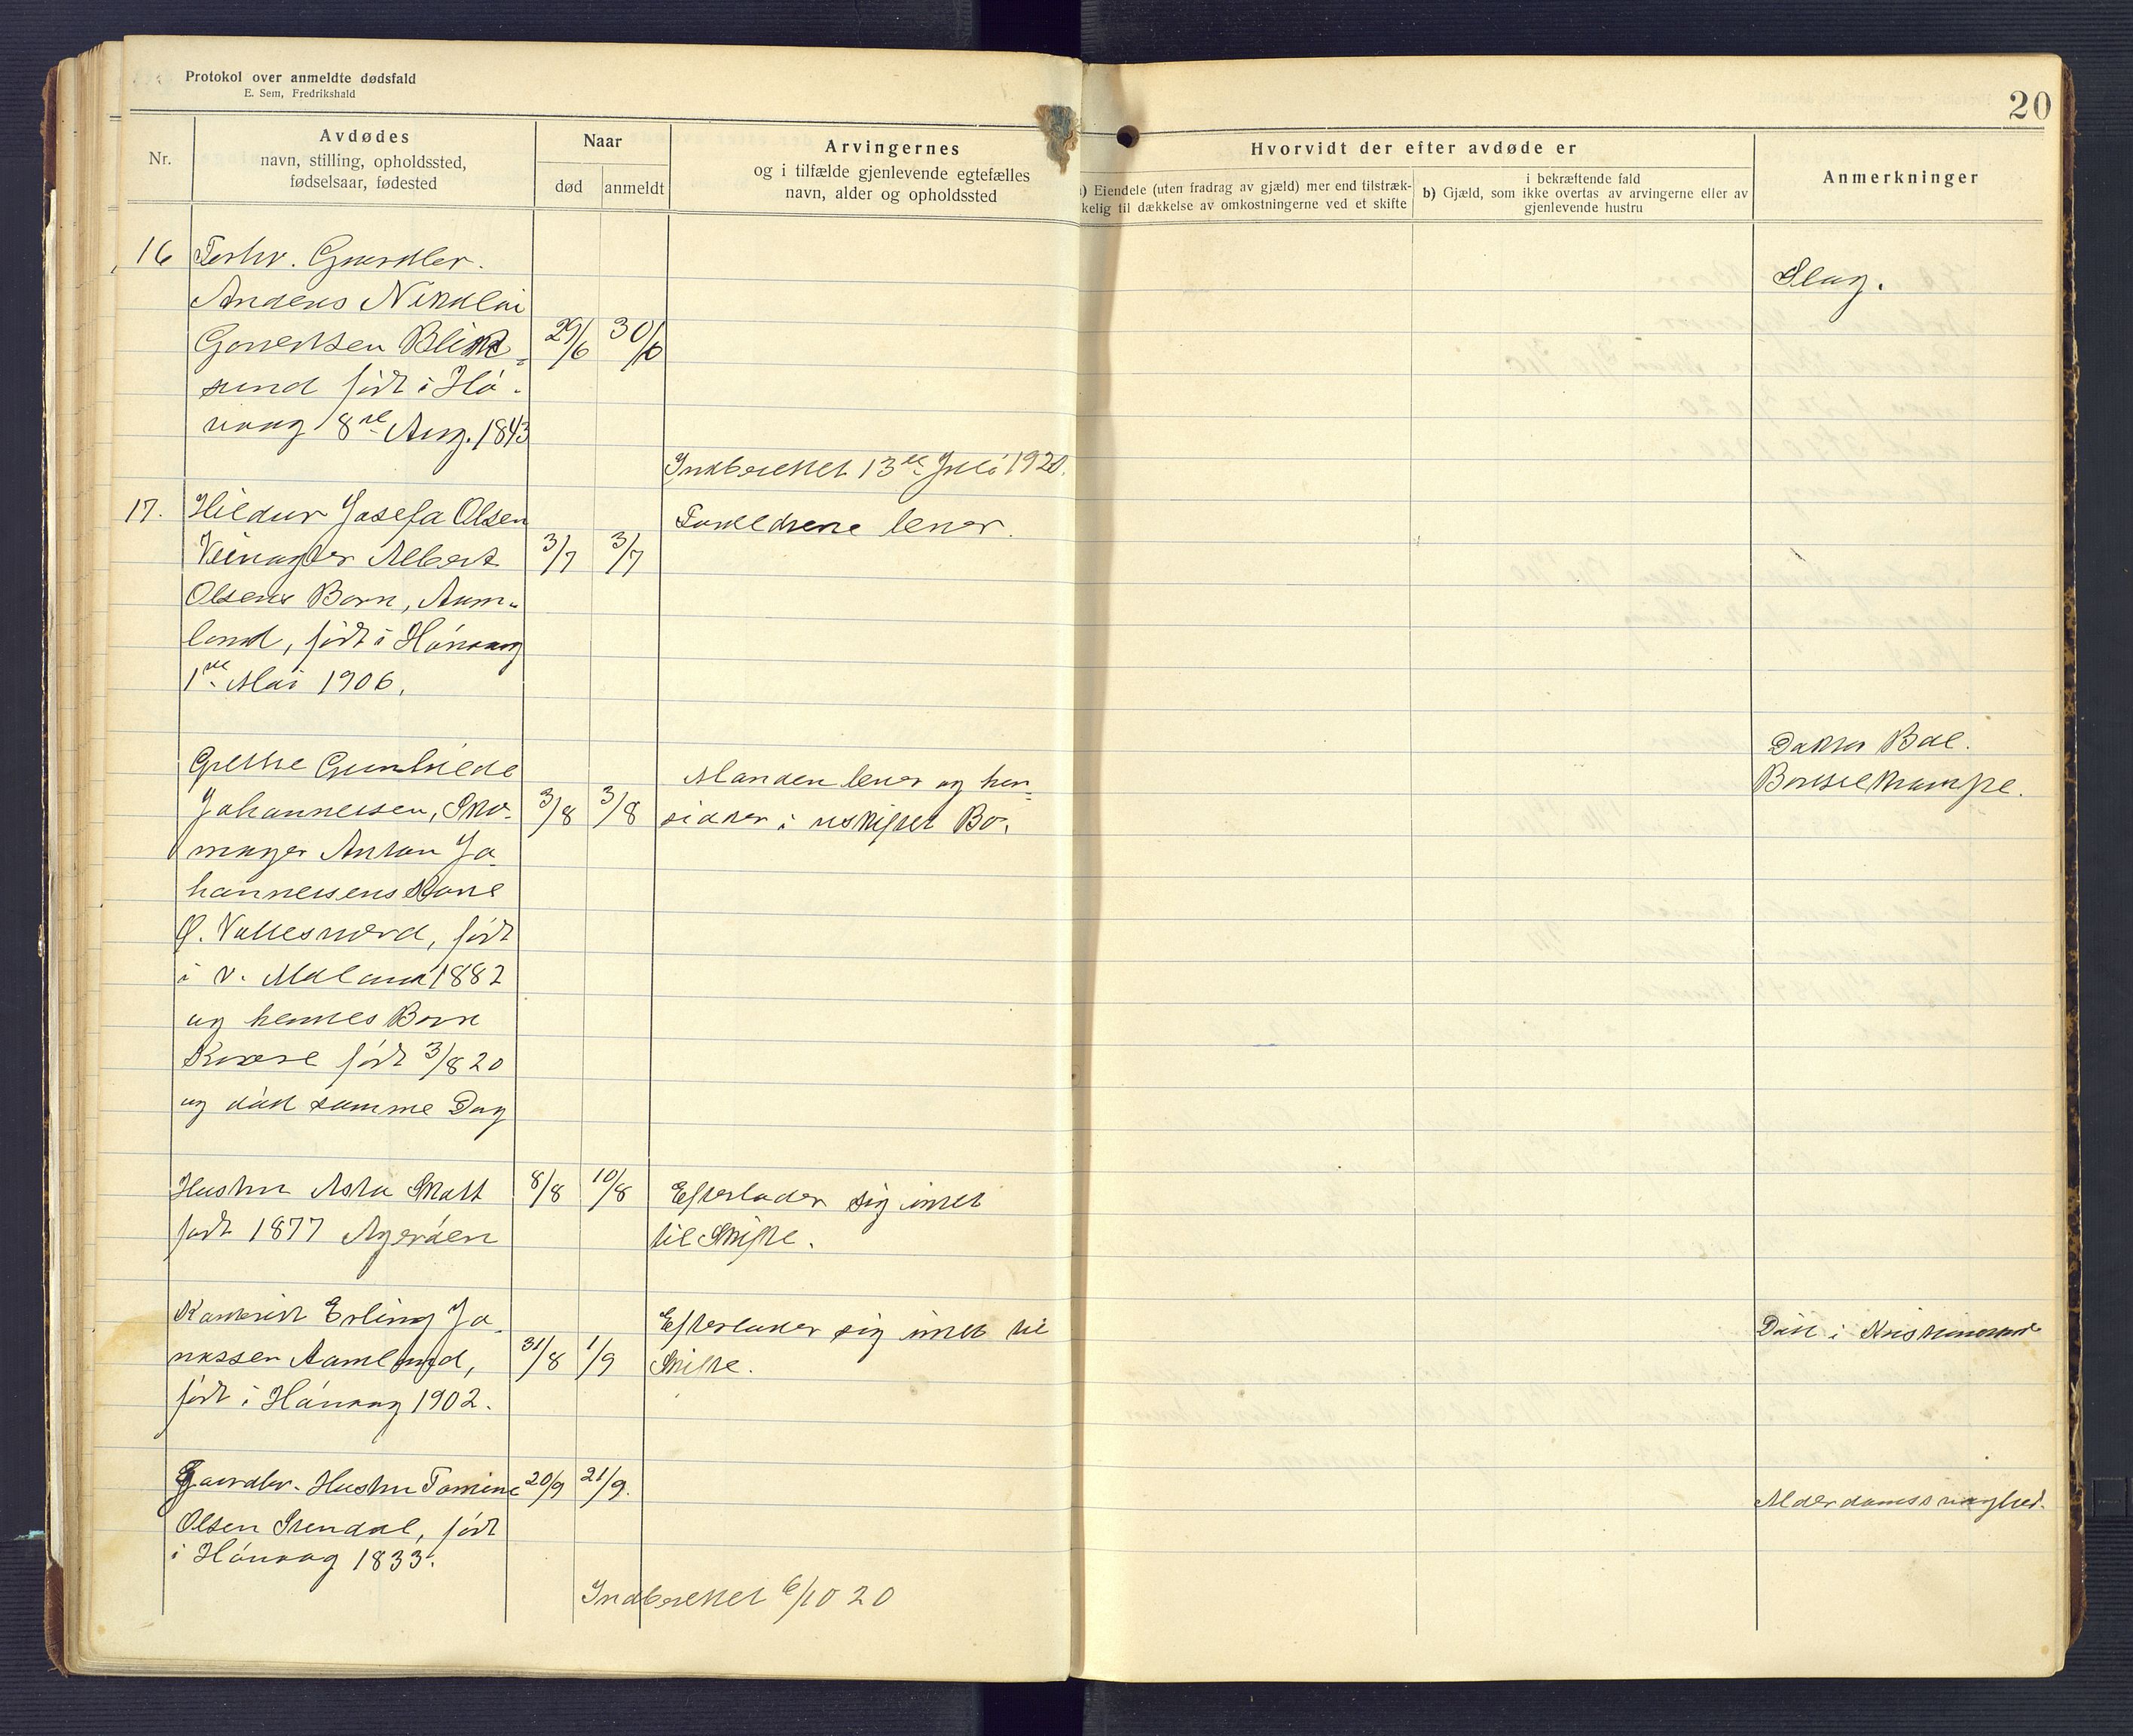 Protokol over anmeldte dødsfald
E. Sem, Fredrikshald
20
Nr.
Avdødes
navn, stilling, opholdssted,
fødselsaar, fødested
Naar
død
anmeldt
Arvingernes
og i tilfælde gjenlevende egtefælles
navn, alder og opholdssted
Hvorvidt der efter avdøde er
a) Eiendele (uten fradrag av gjæld) mer end tilstræk-
kelig til dækkelse av omkostningerne ved et skifte
i bekræftende fald
b) Gjæld, som ikke overtas av arvingerne eller av
gjenlevende hustru
Anmerkninger
16 Forhv. Gaardbr.
Slag.
Anders Nikolai
Gonertsen Blink= 29/6 30/6
sund født i Hø-
vaag 8de Aug. 1843
Indberettet 13de Juli 1920.
17. Hildur Josefa Olsen
Forældrene lever.
Veivogter Albert 3/7 3/7
Olsens Barn, Aam-
land, født i Høvaag
1ste Mai 1906.
Grethe Gunhilde
Doktor Boe.
Johannessen, Sko- 3/8 3/8
Manden lever og hen-
sidder i uskiftet Bo.
Barselkrampe.
mager Anton Jo-
hannessens Kone
Ø. Vallesværd, født
i V. Moland 1882
og hennes Barn
født 3/8 20
og død samme Dag
Hustru Asta Skott 8/8 10/8 Efterlader sig intet
født 1877 Agerøen til Skifte.
Kontorist Erling Jo-
Efterlader sig intet til
Død i Kristiansand
nassen Aamland, 31/8 1/9 Skifte.
født i Høvaag 1902.
Gaardbr. Hustru Tomine 20/9 21/9.
Alderdomssvaghed.
Olsen Stendal, født
i Høvaag 1833.
Indberettet 6/10 20